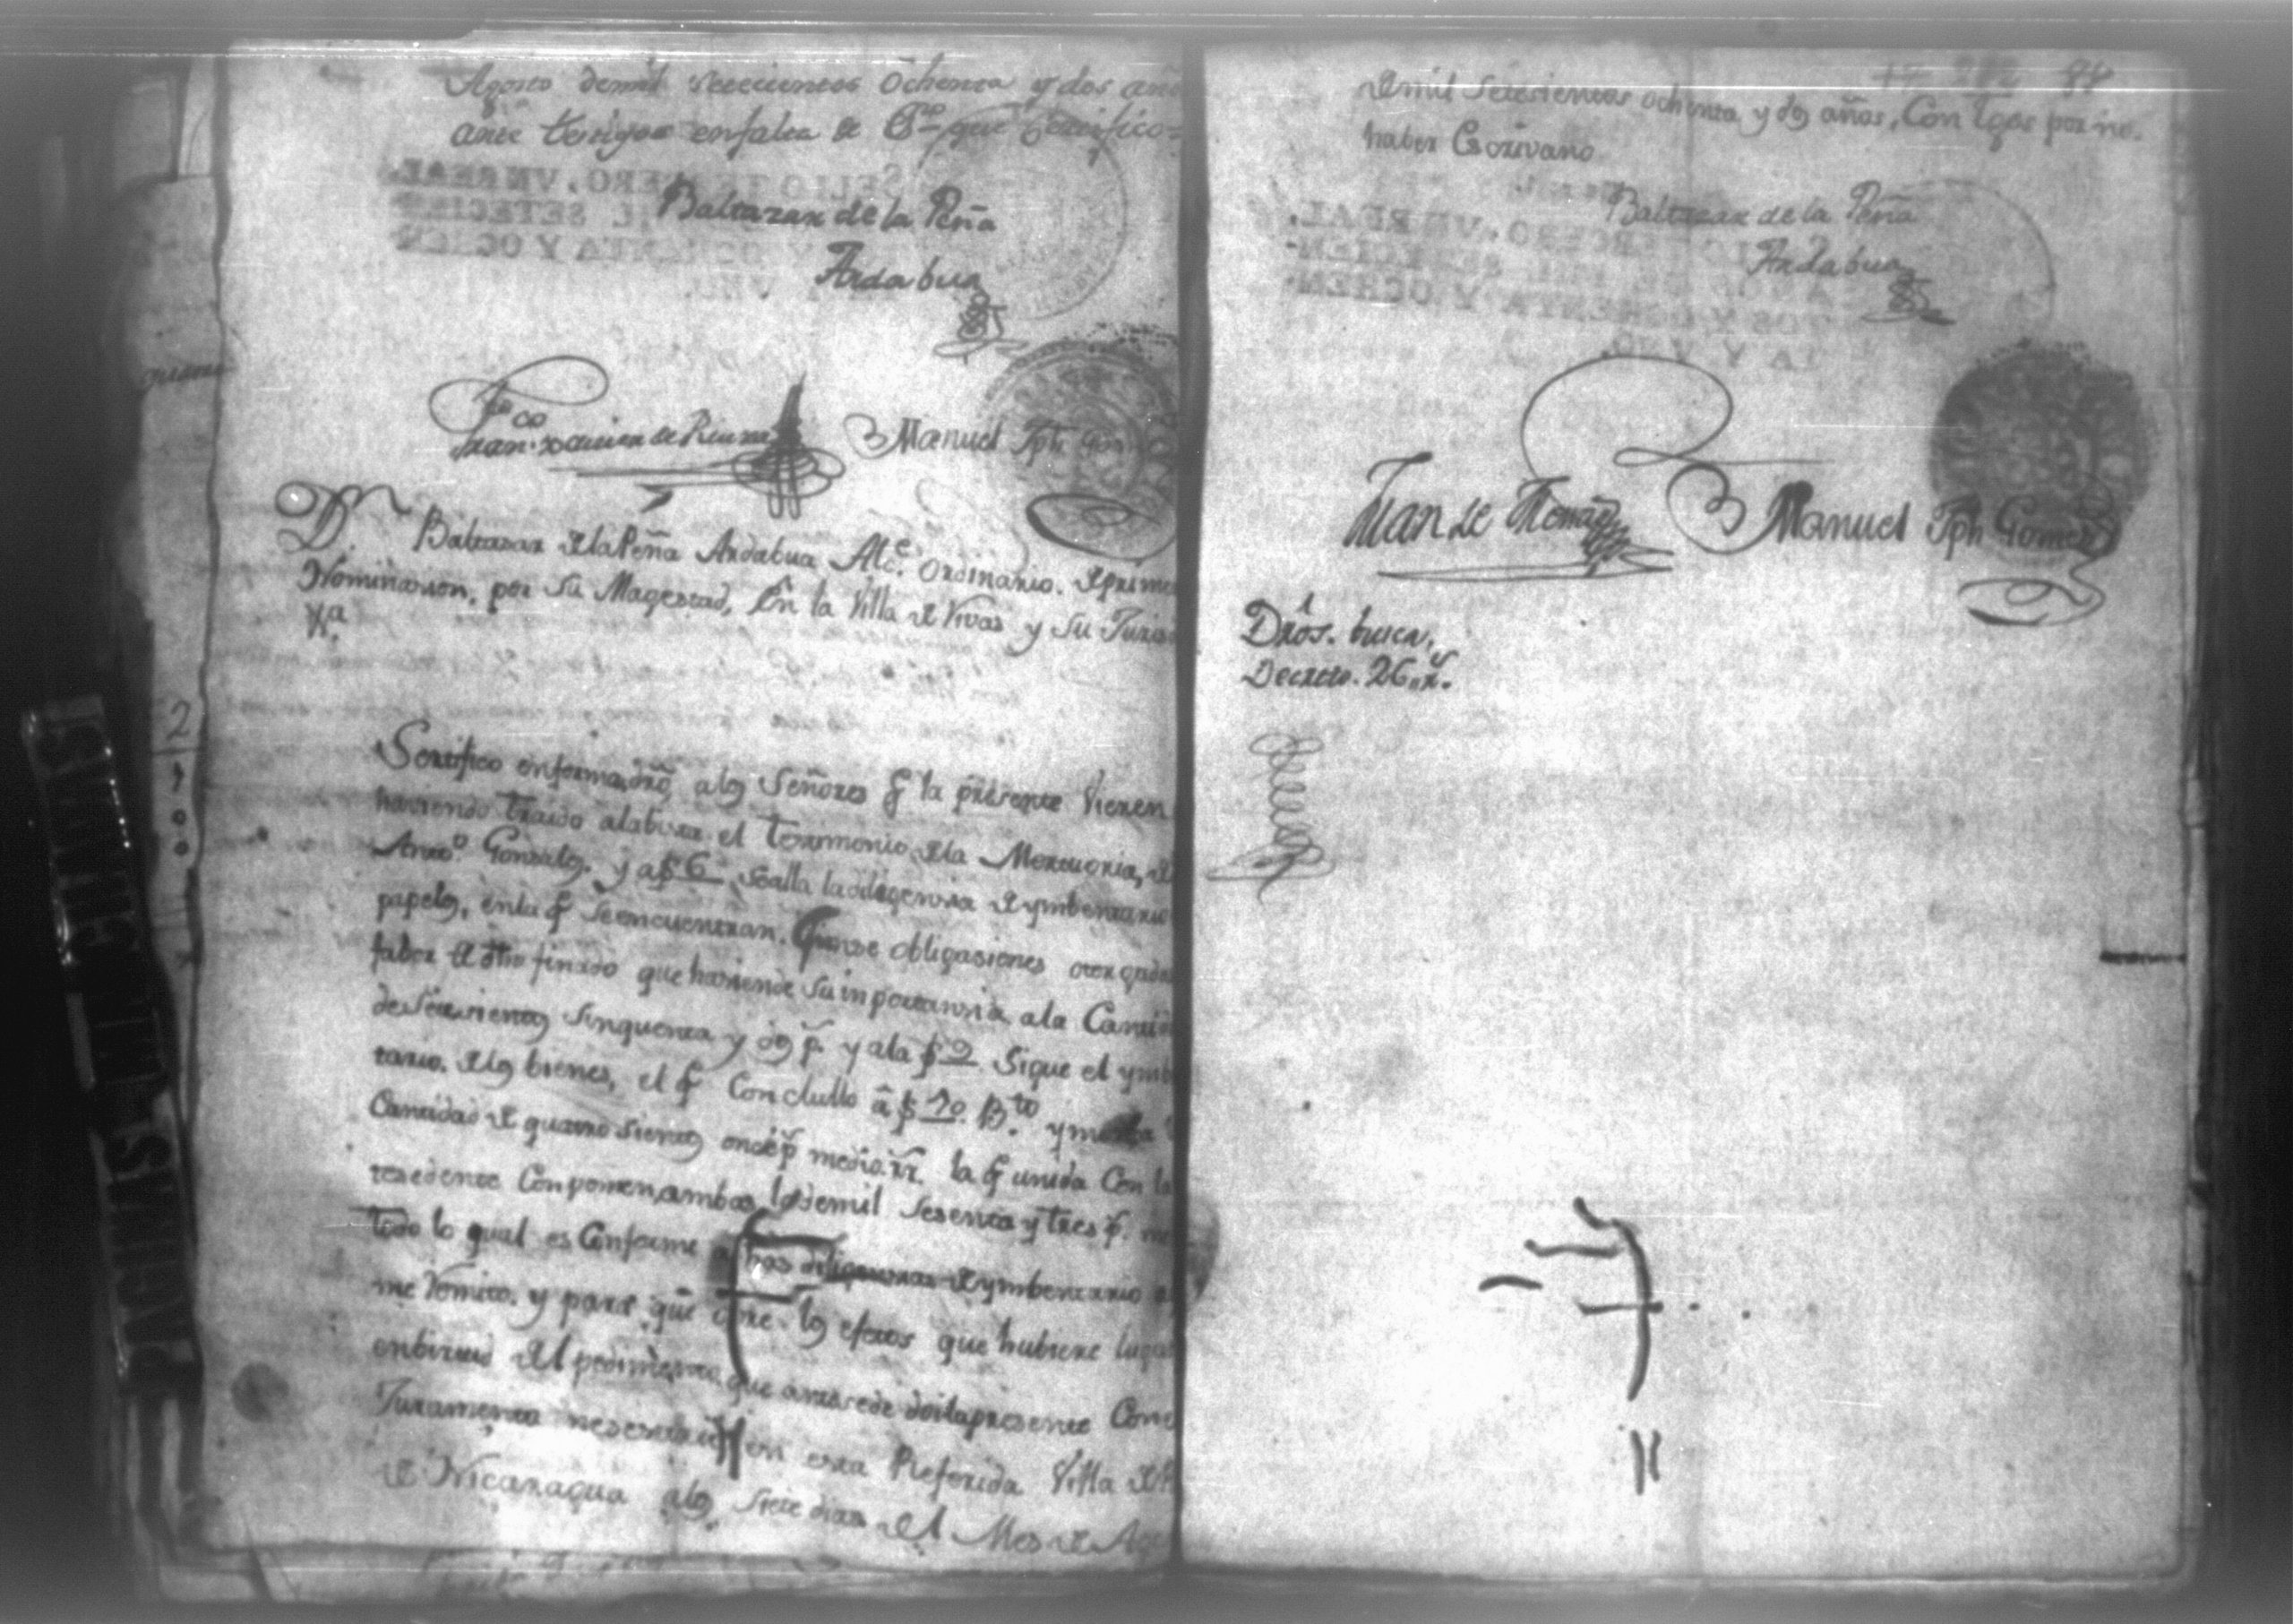 Agosto demil setecientos ochenta y dos añ
ante testigos enfalta de Es.no que Certifico=
SELLO TERCERO, VN REAL,
IL SETECIEN
Y OCHENTA Y OCHEN
Baltazar de la Peña
Andabua
Fran.co xavier de
Manuel Jph Gom
D.n Baltazar de la Peña Andabua Alc.e Ordinario. de prime
Nominasion, por Su Magestad, En la Villa de Rivas y su Juris
Xa
Sertifico enforma a los Señores q la presente Vieren
haviendo traido alabista el Testimonio, de la Mortuoria, de
Anto.o Gonzales. y a f 6 se alla la diligensia de ymbentario
papeles, enla q se encuentran. Quinse obligasiones otorgada
fabor de dho finado que hasiende su inportansia a la Canti
de seissientos Sinquenta y dos p. y ala f 9 Sigue el ymb
tario. de los bienes, el q Conclullo â f 10 B.to y monta
Cantidad de quatro sientos onse p medio rr. la q unida Con la
tesedente Conponen, ambas los de mil Sesenta y tres p. me
Todo lo qual es Conforme a dhas diligensias de ymbentario a
me Remito. y para que obre los efectos que hubiere lugar
enbirtud del pedimento, que antesede doi la presente Con
Juramento nesesario en esta Referida Villa de
de Nicaragua a los Siete dias del Mes de Ag
2
1
0
0
PAGINAS
demil Setesientos ochenta y dos años, Con tgos por no.
haber Escrivano
TERCERO, VN REAL,
MIL SETECIEN-
TOS Y OCHENTA Y OCHEN-
TA Y VNO.
Baltazar de la Peña
Andabua
Juan de
Manuel Jph Gomez
Dros. busca,
Decreto. 26 rr.